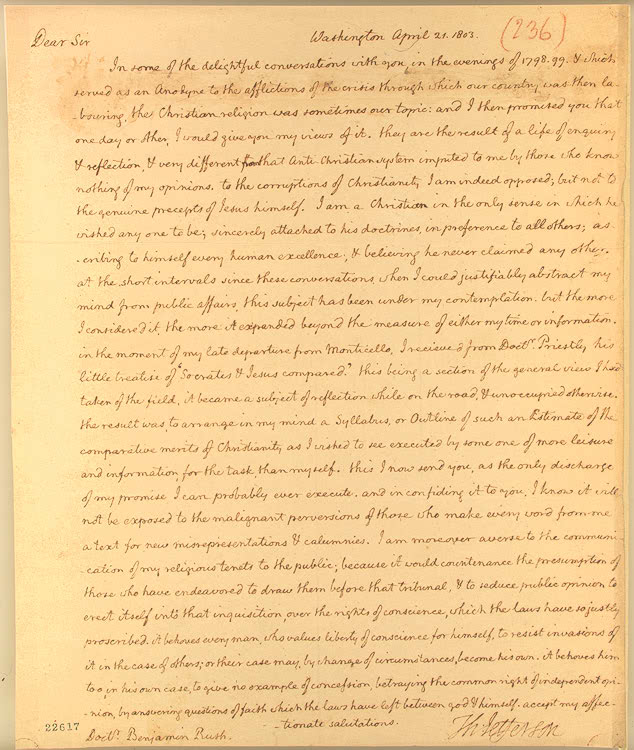 (236)
Washington April 21. 1803.
Dear Sir
In some of the delightful conversations with you, in the evenings of 1798. 99. & which
served as an Anodyne to the afflictions of the crisis through which our country was then la-
-bouring, the Christian religion was sometimes our topic: and I then promised you that
one day or other, I would give you my views of it. they are the result of a life of enquiry
& reflection, & very different from that Anti-Christian system imputed to me by those who know
nothing of my opinions. to the corruptions of Christianity I am indeed opposed; but not to
the genuine precepts of Jesus himself. I am a Christian in the only sense in which he
wished any one to be; sincerely attached to his doctrines, in preference to all others; as
-cribing to himself every human excellence, & believing he never claimed any other.
at the short intervals since these conversations, when I could justifiably abstract my
mind from public affairs, this subject has been under my contemplation. but the more
I considered it, the more it expanded beyond the measure of either my time or information.
in the moment of my late departure from Monticello, I recieved from Doctr. Priestly his
little treatise of "Socrates & Jesus compared." this being a section of the general view I had
taken of the field, it became a subject of reflection while on the road, & unoccupied otherwise.
the result was, to arrange in my mind a Syllabus, or Outline of such an Estimate of the
comparative merits of Christianity, as I wished to see executed by some one of more leisure
and information for the task than myself. this I now send you, as the only discharge
of my promise I can probably ever execute. and in confiding it to you, I know it will
not be exposed to the malignant perversions of those who make every word from me
a text for new misrepresentations & calumnies. I am moreover averse to the communi-
-cation of my religious tenets to the public; because it would countenance the presumption of
those who have endeavored to draw them before that tribunal, & to seduce public opinion to
erect itself into that inquisition over the rights of conscience, which the laws have so justly
proscribed. it behoves every man, who values liberty of conscience for himself, to resist invasions of
it in the case of others; or their case may, by change of circumstances, become his own. it behoves him
too, in his own case, to give no example of concession, betraying the common right of independent opi-
-nion, by answering questions of faith, which the laws have left between god & himself. accept my affec-
-tionate salutations.
Th: Jefferson
22617
Doctr. Benjamin Rush.